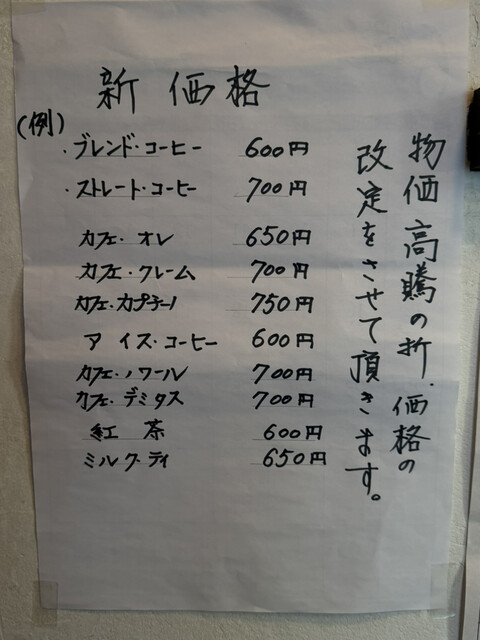 新価格
(例)
・ブレンド・コーヒー 600円
・ストレート・コーヒー 700円
カフェ・オレ 650円
カフェ・クレーム 700円
カフェ・カプチーノ 750円
アイス・コーヒー 600円
カフェ・ノワール 700円
カフェ・デミタス 700円
紅茶 600円
ミルク・ティ 650円
物価高騰の折、価格の
改定をさせて頂きます。